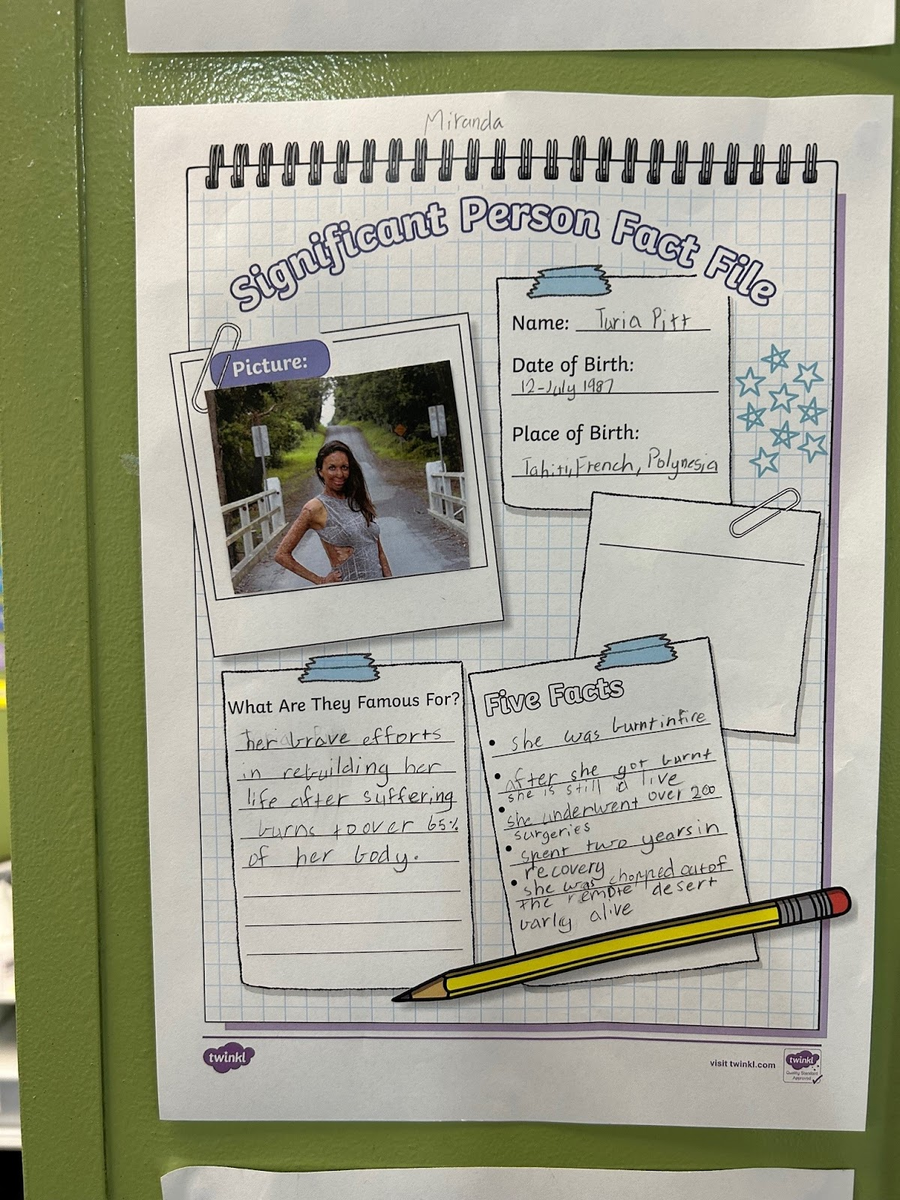 Miranda
Significant Person Fact File
Picture:
Name: Turia Pitt
Date of Birth:
12-July 1987
Place of Birth:
Tahiti, French, Polynesia
What Are They Famous For?
her brave efforts
in rebuilding her
life after suffering
burns to over 65%
of her body.
Five Facts
• she was burnt in fire
• After she got burnt
she is still a live
• she underwent over 200
surgeries
• spent two years in
recovery
• she was chopped out of
the remote desert
barly alive
twinkl
visit twinkl.com
twinkl
Quality Standard
Approved